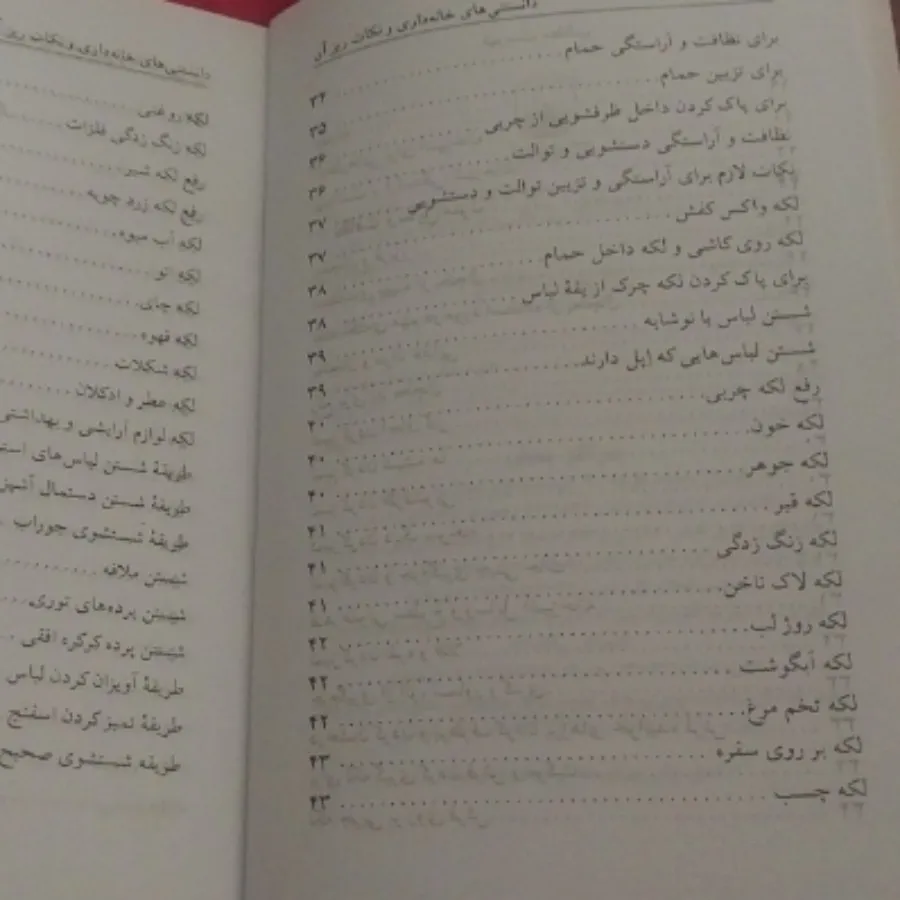 دانستنی‌های خانه‌داری و نکات ریز آن
برای نظافت و آراستگی حمام ........ ۳۴
برای تزیین حمام ........ ۳۵
برای پاک کردن داخل ظرفشویی از چربی ........ ۳۶
نظافت و آراستگی دستشویی و توالت ........ ۳۶
نکات لازم برای آراستگی و تزیین توالت و دستشویی ........ ۳۷
لکه واکس کفش ........ ۳۷
لکه روی کاشی و لکه داخل حمام ........ ۳۸
برای پاک کردن لکه چرک از یقهٔ لباس ........ ۳۸
شستن لباس با نوشابه ........ ۳۹
شستن لباس‌هایی که اپل دارند ........ ۳۹
رفع لکه چربی ........ ۴۰
لکه خون ........ ۴۰
لکه جوهر ........ ۴۰
لکه قیر ........ ۴۱
لکه زنگ زدگی ........ ۴۱
لکه لاک ناخن ........ ۴۱
لکه روژ لب ........ ۴۲
لکه آبگوشت ........ ۴۲
لکه تخم مرغ ........ ۴۲
لکه بر روی سفره ........ ۴۳
لکه چسب ........ ۴۳
دانستنی‌های خانه‌داری و نکات ریز
لکه روغنی ........
لکه زنگ زدگی فلزات ........
رفع لکه شیر ........
رفع لکه زرد چوبه ........
لکه آب میوه ........
لکه اتو ........
لکه چای ........
لکه قهوه ........
لکه شکلات ........
لکه عطر و ادکلان ........
لکه لوازم آرایشی و بهداشتی
طریقهٔ شستن لباس‌های
طریقهٔ شستن دستمال
طریقهٔ شستشوی جوراب ........
شستن ملافه ........
شستن پرده‌های توری ........
شستن پرده کرکره افقی ........
طریقهٔ آویزان کردن لباس
طریقهٔ تمیز کردن اسفنج
طریقه شستشوی صحیح